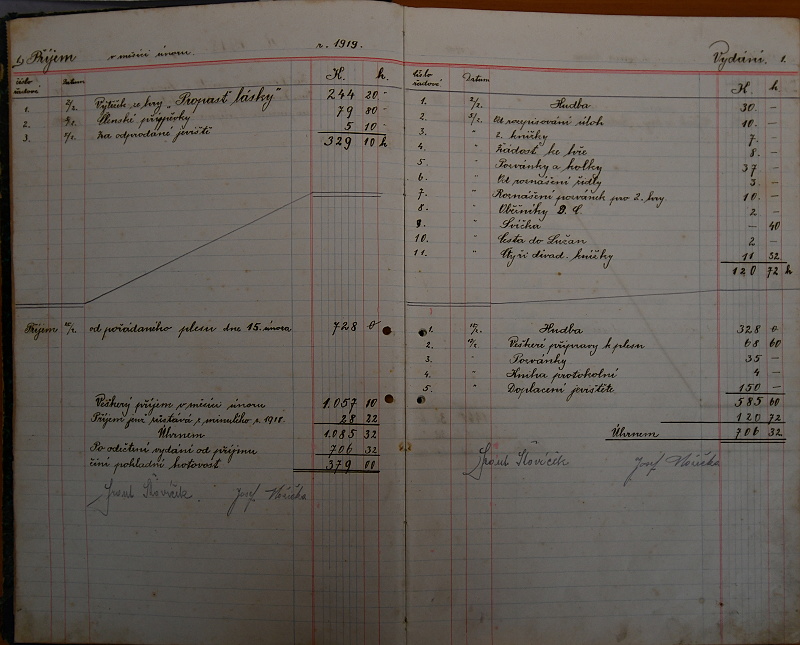 Příjem v měsíci únoru r. 1919.
číslo řadové Datum H. h.
1. 2/2. Výtěžek ze hry „Propast lásky" 244 20
2. 9/2. Členské příspěvky 79 80
3. Za odprodané jeviště 5 10
329 10 h
Příjem od pořádaného plesu dne 15. února 728 0
Veškerý příjem v měsíci únoru 1.057 10
Příjem jenž zůstává z minulého r. 1918. 28 22
Úhrnem 1.085 32
Po odečtení vydání od příjmu 706 32
činí pokladní hotovost 379 00
Josef
Vydání. 1.
číslo řadové Datum H. h
1. 2/2. Hudba 30 -
2. 5/2. Od rozepisování úloh 10 -
3. " 2. knížky 7 -
4. " Žádost ke hře 8 -
5 " Pozvánky a kolky 37 -
6. " Od roznášení židly 3 -
7. " Roznášení pozvánek pro 2. hry 10 -
8. " 2 -
9. " Svíčka - 40
10. " Cesta do Lužan 2 -
11. " Čtyři divad. knížky 11 32
120 72 h
1. 15/2. Hudba 328 0
2. Veškeré přípravy k plesu 68 60
3. " Pozvánky 35 -
4. " Kniha protokolní 4 -
5. " Doplacení jeviště 150 -
585 60
120 72
Úhrnem 706 32
Josef